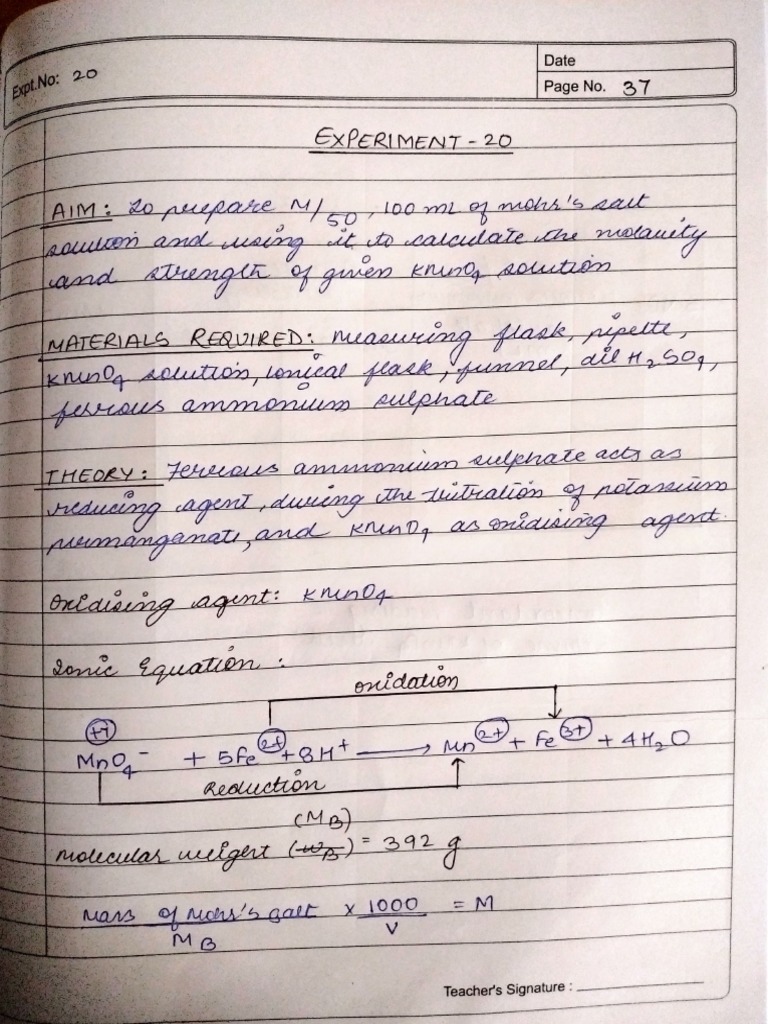 Expt.No: 20
Date
Page No. 37
EXPERIMENT - 20
AIM: To prepare M/50, 100 ml of mohr's salt
solution and using it to calculate the molarity
and strength of given KMnO4 solution
MATERIALS REQUIRED: Measuring flask, pipette,
KMnO4 solution, conical flask, funnel, dil H2SO4,
ferrous ammonium sulphate
THEORY: Ferrous ammonium sulphate acts as
reducing agent, during the titration of potassium
permanganate, and KMnO4 as oxidising agent.
Oxidising agent: KMnO4
Ionic Equation:
oxidation
+7
MnO4⁻ + 5Fe²⁺ + 8H⁺ → Mn²⁺ + Fe³⁺ + 4H2O
Reduction
(MB)
Molecular weight (WB) = 392 g
Mass of Mohr's Salt × 1000 = M
MB V
Teacher's Signature :